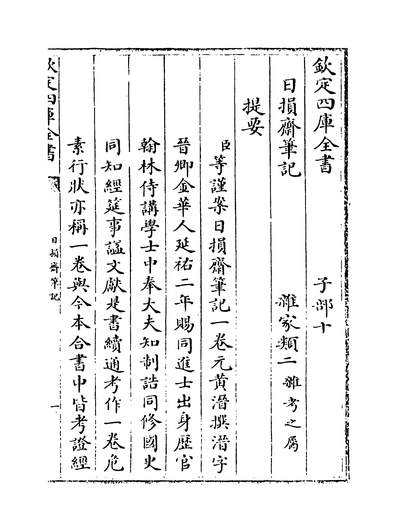 欽定四庫全書　子部十
日損齋筆記　雜家類二雜考之屬
提要
臣等謹案日損齋筆記一卷元黃溍撰溍字
晉卿金華人延祐二年賜同進士出身歷官
翰林侍講學士中奉大夫知制誥同修國史
同知經筵事諡文獻是書續通考作一卷危
素行狀亦稱一卷與今本合書中皆考證經
欽定四庫全書
日損齋筆記
一